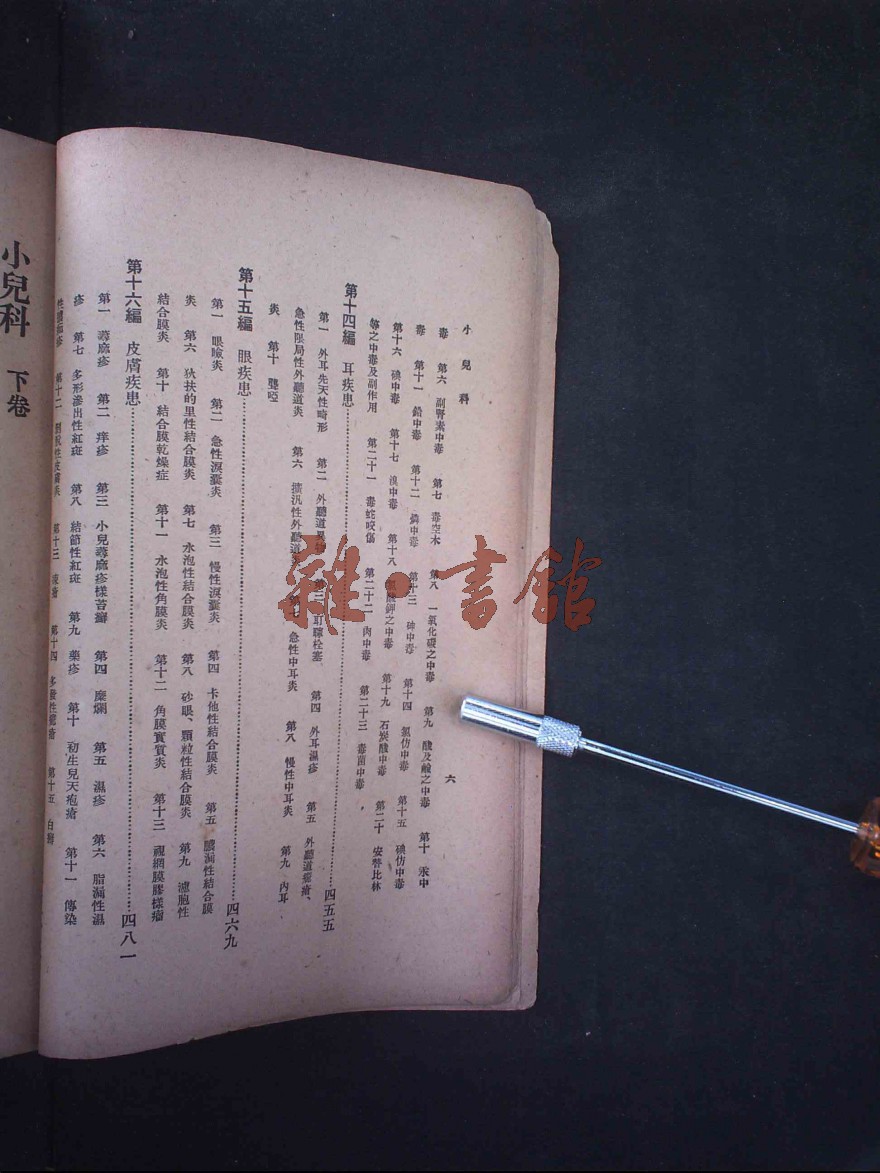 小兒科
六
毒　第六　副腎素中毒　第七　毒空木　第八　一氧化碳之中毒　第九　酸及鹼之中毒　第十　汞中
毒　第十一　鉛中毒　第十二　燐中毒　第十三　砷中毒　第十四　氯仿中毒　第十五　碘仿中毒
第十六　碘中毒　第十七　溴中毒　第十八　酸鉀之中毒　第十九　石炭酸中毒　第二十　安替比林
等之中毒及副作用　第二十一　毒蛇咬傷　第二十二　肉中毒　第二十三　毒菌中毒
第十四編　耳疾患……四五五
第一　外耳先天性畸形　第二　外聽道異物　第三　耵聹栓塞　第四　外耳濕疹　第五　外聽道癤瘡、
急性限局性外聽道炎　第六　擴汎性外聽道炎　第七　急性中耳炎　第八　慢性中耳炎　第九　內耳
炎　第十　聾啞
第十五編　眼疾患……四六九
第一　眼瞼炎　第二　急性淚囊炎　第三　慢性淚囊炎　第四　卡他性結合膜炎　第五　膿漏性結合膜
炎　第六　狄扶的里性結合膜炎　第七　水泡性結合膜炎　第八　砂眼、顆粒性結合膜炎　第九　濾胞性
結合膜炎　第十　結合膜乾燥症　第十一　水泡性角膜炎　第十二　角膜實質炎　第十三　視網膜膠樣瘤
第十六編　皮膚疾患……四八一
第一　蕁麻疹　第二　痒疹　第三　小兒蕁麻疹樣苔癬　第四　糜爛　第五　濕疹　第六　脂漏性濕
疹　第七　多形滲出性紅斑　第八　結節性紅斑　第九　藥疹　第十　初生兒天疱瘡　第十一　傳染
第十二　剝脫性皮膚炎　第十三　第十四　多發性膿瘡　第十五　白癬
小兒科　下卷
雜·書館